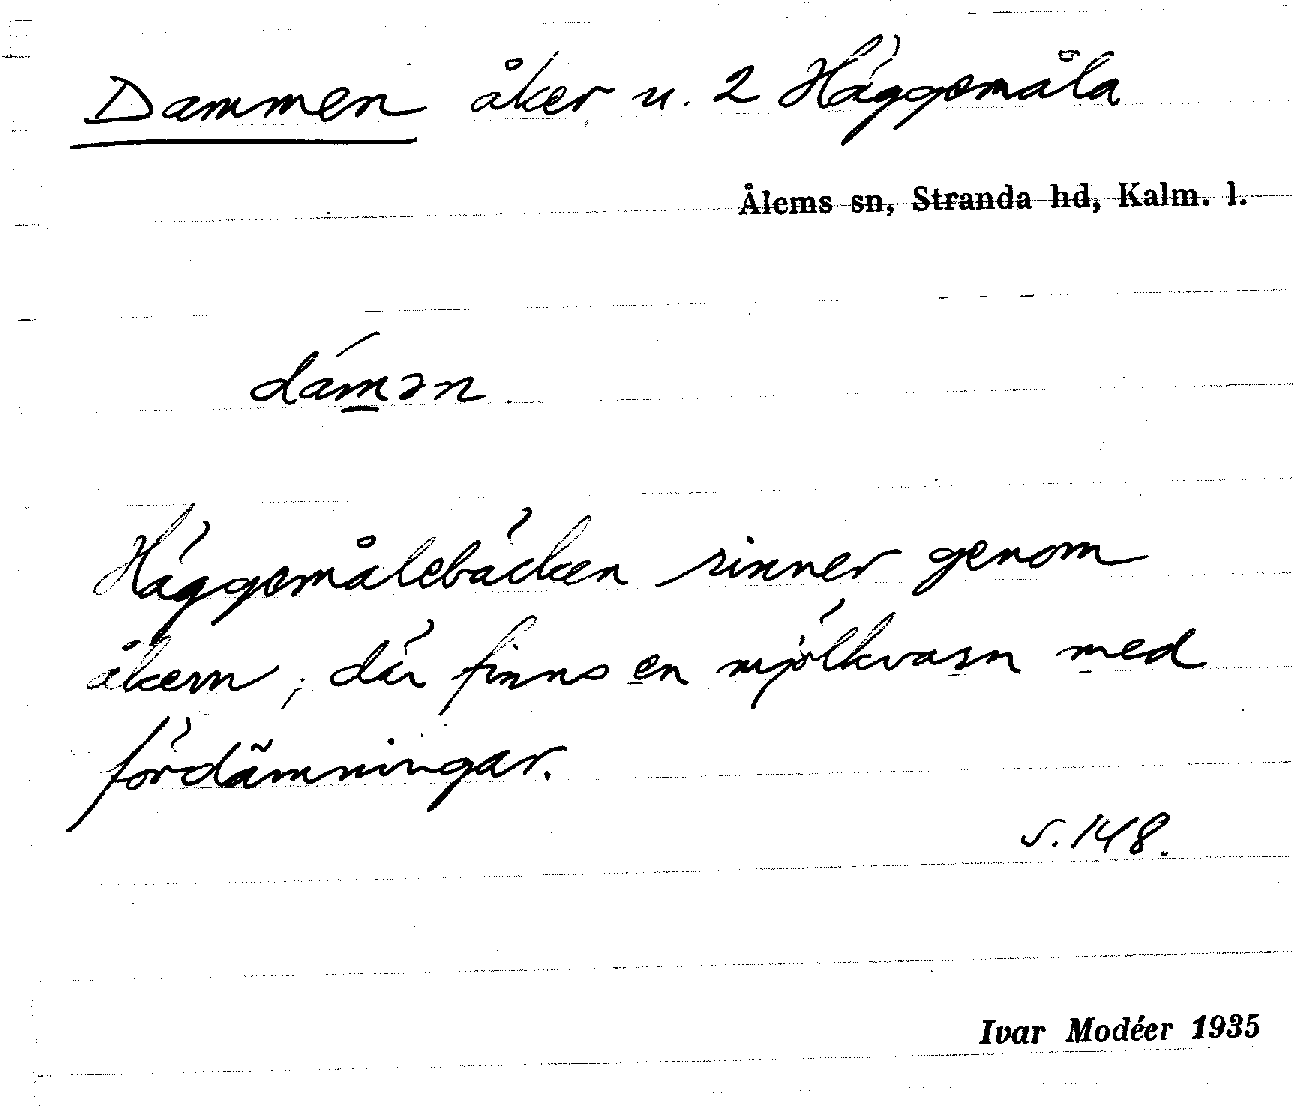 Dammen åker u. 2 Häggemåla
Ålems sn, Stranda hd, Kalm. l.
dámən
Häggemålebäcken rinner genom
åkern, där finns en mjölkvarn med
fördämningar.
s. 148.
Ivar Modéer 1935